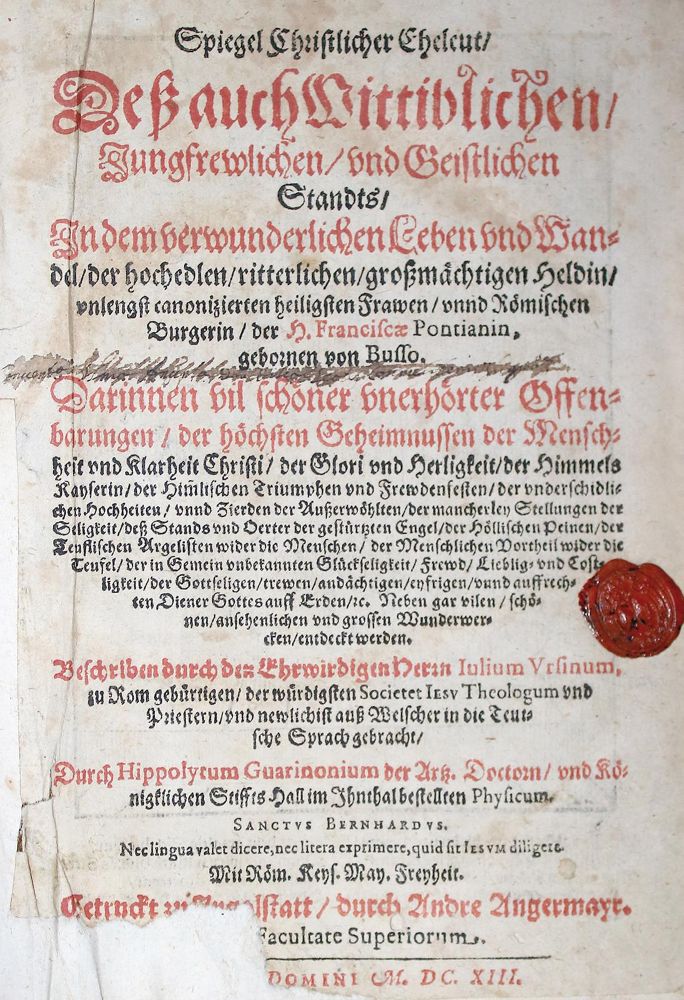 Spiegel Christlicher Eheleut/
Deß auch Wittiblichen/
Jungfrewlichen/ vnd Geistlichen
Standts/
In dem verwunderlichen Leben vnd Wan-
del/ der hochedlen/ ritterlichen/ großmächtigen Heldin/
vnlengst canonizierten heiligsten Frawen/ vnnd Römischen
Burgerin/ der H. Franciscæ Pontianin,
gebornen von Busso.
Darinnen vil schöner vnerhörter Offen-
barungen/ der höchsten Geheimnussen der Mensch-
heit vnd Klarheit Christi/ der Glori vnd Herligkeit/ der Himmels
Kayserin/ der Him̃lischen Triumphen vnd Frewdenfesten/ der vnderschidli-
chen Hochheiten/ vnnd Zierden der Außerwöhlten/ der mancherley Stellungen der
Seligkeit/ deß Stands vnd Oerter der gestürtzten Engel/ der Höllischen Peinen/ der
Teuflischen Argelisten wider die Menschen/ der Menschlichen Vortheil wider die
Teufel/ der in Gemein vnbekannten Glückseligkeit/ Frewd/ Lieblig- vnd Cost-
ligkeit/ der Gottseligen/ trewen/ andächtigen/ eyfrigen/ vnnd auffrech-
ten Diener Gottes auff Erden/ ꝛc. Neben gar vilen/ schö-
nen/ ansehenlichen vnd grossen Wunderwer-
cken/ entdeckt werden.
Beschriben durch den Ehrwirdigen Herrn Iulium Vrsinum,
zu Rom gebürtigen/ der würdigsten Societet IESV Theologum vnd
Priestern/ vnd newlichist auß Welscher in die Teut-
sche Sprach gebracht/
Durch Hippolytum Guarinonium der Artz. Doctorn/ vnd Kö-
nigklichen Stiffts Hall im Ihnthal bestellten Physicum.
SANCTVS BERNHARDVS.
Nec lingua valet dicere, nec litera exprimere, quid sit IESVM diligere.
Mit Röm. Keys. May. Freyheit.
Getruckt zu Ingolstatt/ durch Andre Angermayr.
Facultate Superiorum.
DOMINI M. DC. XIII.